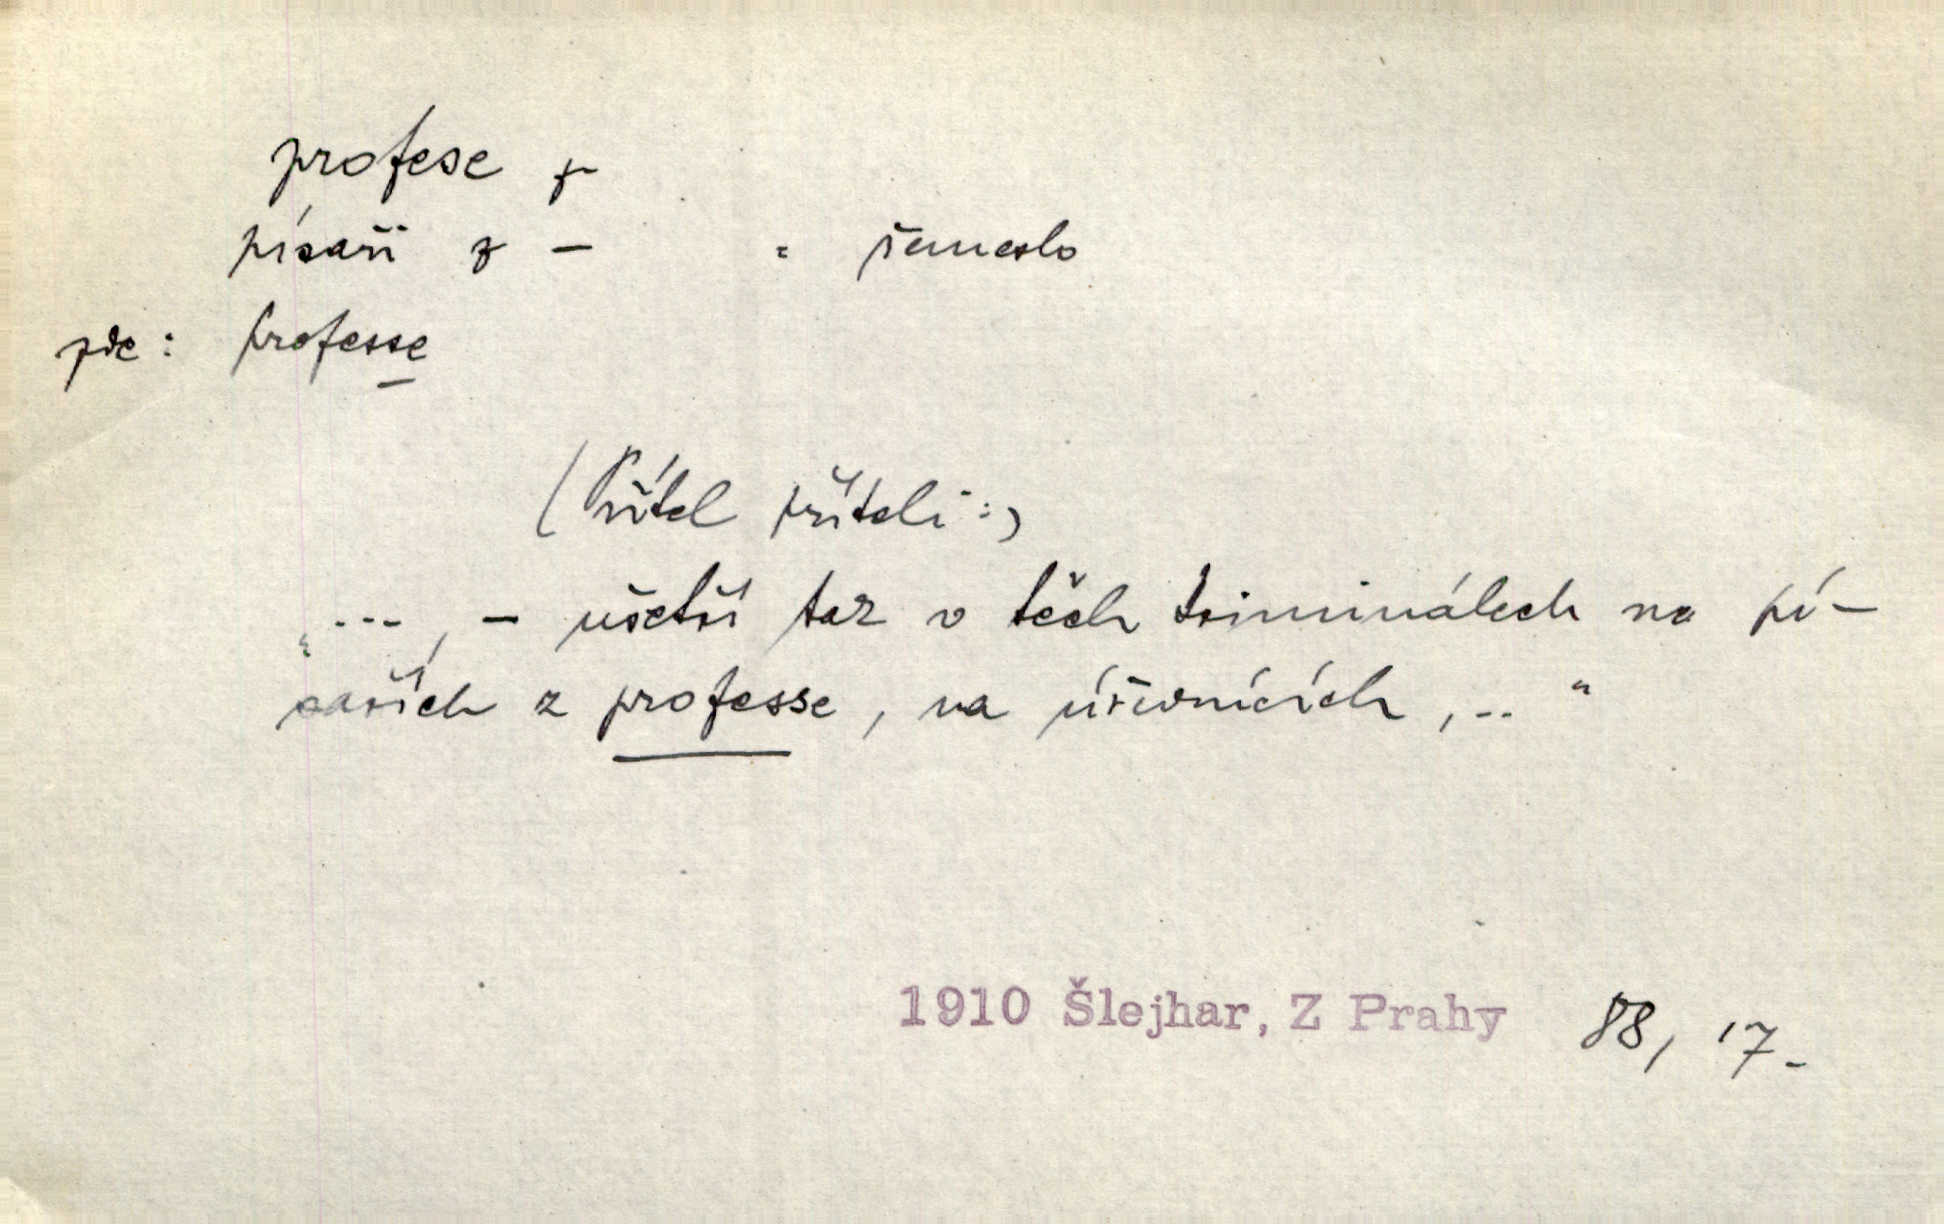 profese f
písaři z – = řemeslo
zde: professe
(Přítel příteli:)
"---, – ušetří tak v těch kriminálech na pí-
sařích z professe, na úřednících, .. "
1910 Šlejhar, Z Prahy 88, 17-